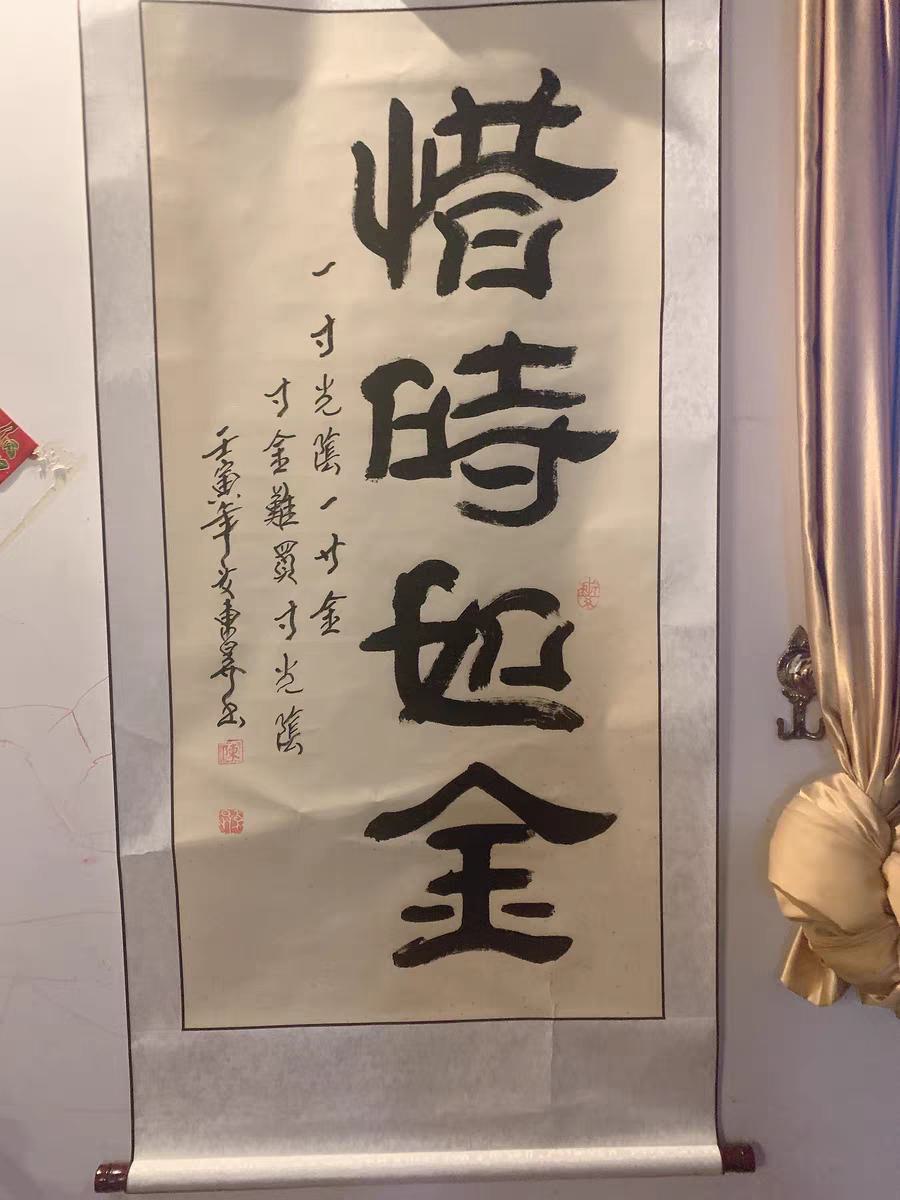 惜時如金
一寸光陰一寸金
寸金難買寸光陰
壬寅年 東昇书
陳